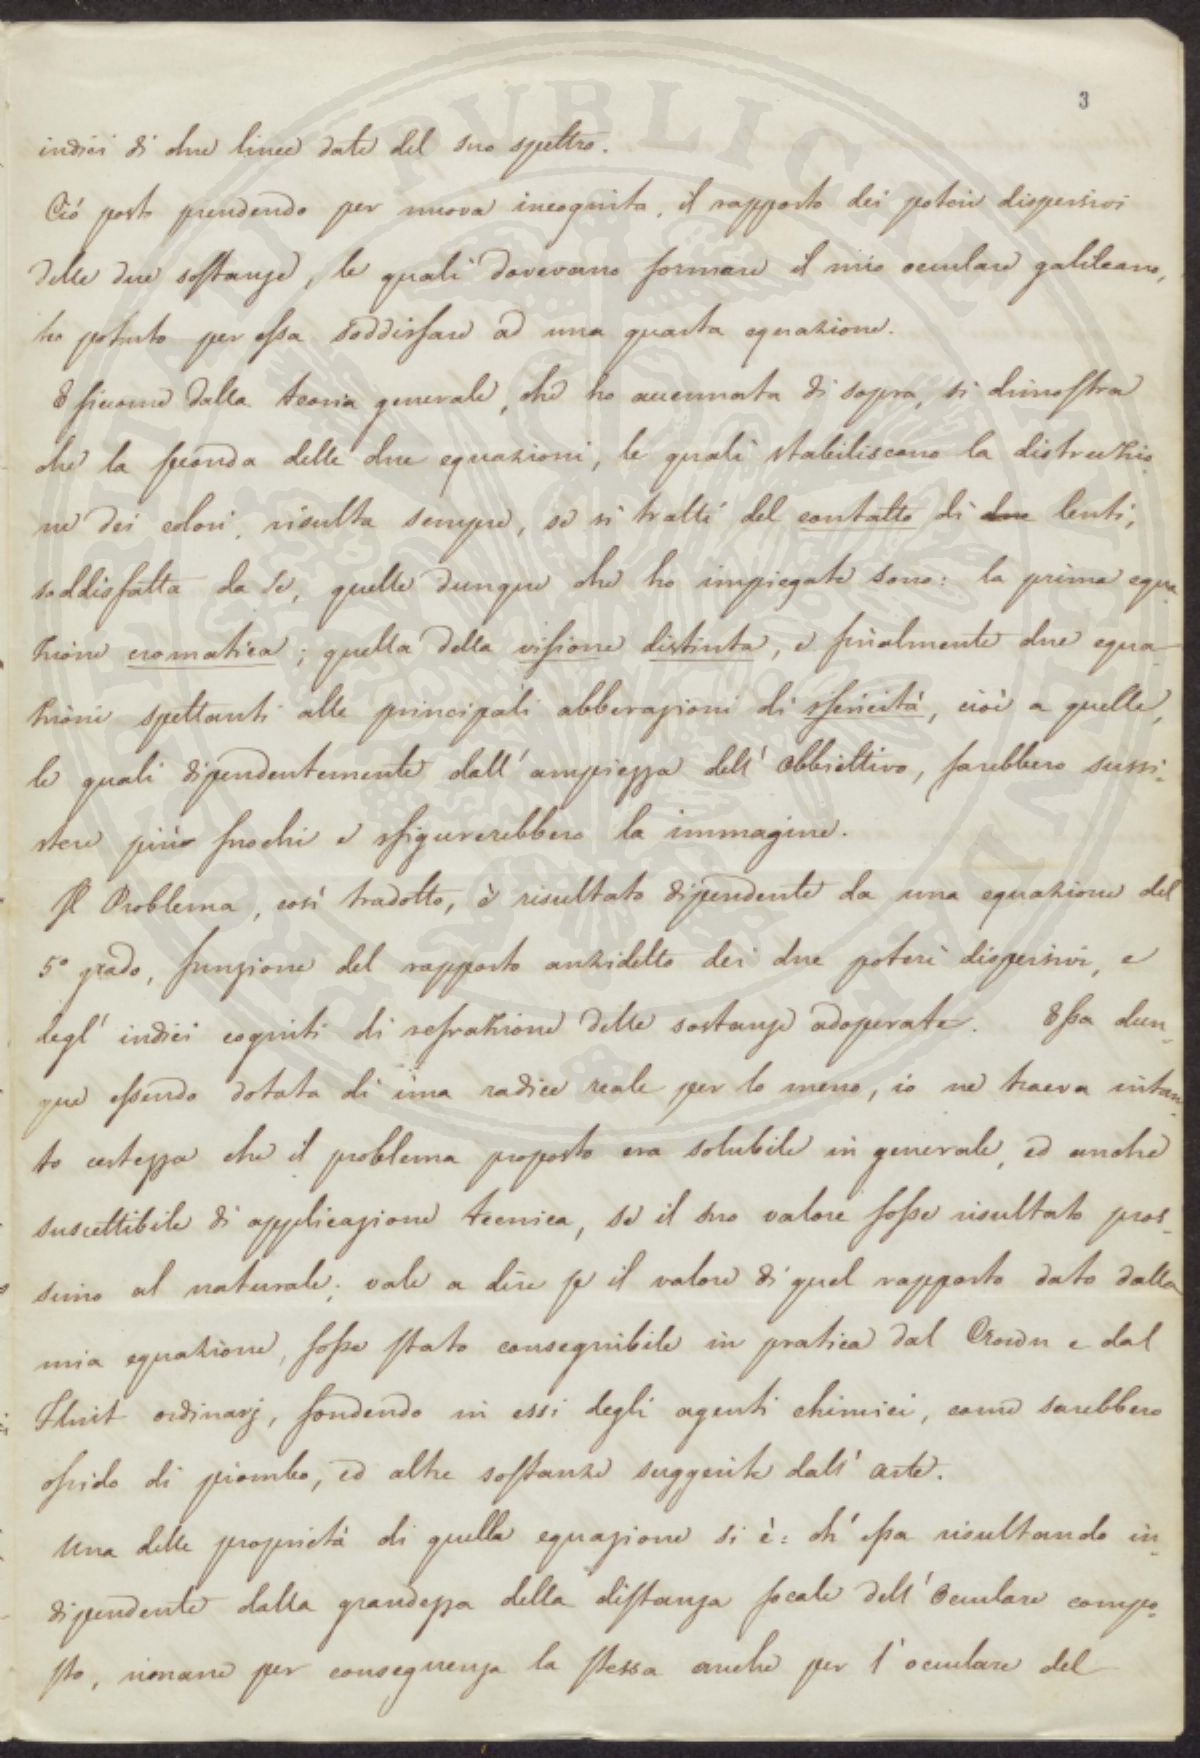 3
indici di due linee date del suo spettro.
Ciò posto prendendo per nuova incognita, il rapporto dei poteri dispersivi
delle due sostanze, le quali dovevano formare il mio oculare galileano,
ho potuto per essa soddisfare ad una quarta equazione.
E siccome dalla teoria generale, che ho accennata di sopra, si dimostra
che la seconda delle due equazioni, le quali stabiliscono la distruzio-
ne dei colori, risulta sempre, se si tratti del contatto di due lenti,
soddisfatta da se, quelle dunque che ho impiegate sono: la prima equa-
zione cromatica; quella della visione distinta, e finalmente due equa-
zioni spettanti alle principali abberazioni di sfericità, cioè a quelle,
le quali dipendentemente dall'ampiezza dell'Obbiettivo, farebbero sussi-
stere più fuochi e sfigurerebbero la immagine.
Il Problema, così tradotto, è risultato dipendente da una equazione del
5° grado, funzione del rapporto anzidetto dei due poteri dispersivi, e
degl'indici cogniti di refrazione delle sostanze adoperate. Essa dun-
que essendo dotata di una radice reale per lo meno, io ne traeva intan-
to certezza che il problema proposto era solubile in generale, ed anche
suscettibile di applicazione tecnica, se il suo valore fosse risultato pros-
simo al naturale; vale a dire se il valore di quel rapporto dato dalla
mia equazione, fosse stato conseguibile in pratica dal Crown e dal
Flint ordinarj, fondendo in essi degli agenti chimici, come sarebbero
ossido di piombo, ed altre sostanze suggerite dall'arte.
Una delle proprietà di quella equazione si è: ch'essa risultando in-
dipendente dalla grandezza della distanza focale dell'Oculare compo-
sto, rimane per conseguenza la stessa anche per l'oculare del